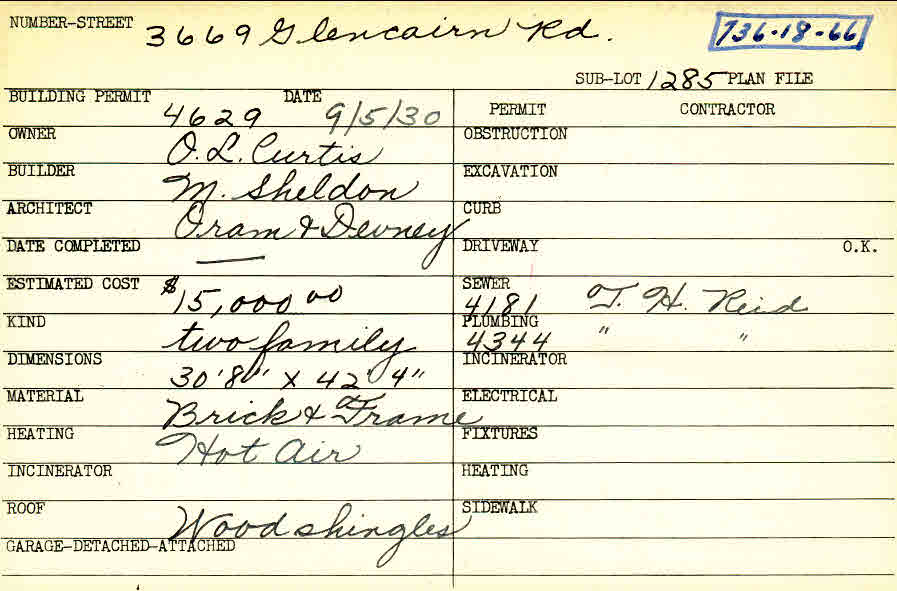 NUMBER-STREET 3669 Glencairn Rd. 736-18-66
SUB-LOT 1285 PLAN FILE
BUILDING PERMIT 4629 DATE 9/5/30
PERMIT CONTRACTOR
OWNER O. L. Curtis
OBSTRUCTION
BUILDER M. Sheldon
EXCAVATION
ARCHITECT Oram & Devney
CURB
DATE COMPLETED —
DRIVEWAY O.K.
ESTIMATED COST $15,000 00
SEWER 4181 T. H. Reid
KIND two family
PLUMBING 4344 " "
DIMENSIONS 30'8" x 42' 4"
INCINERATOR
MATERIAL Brick & Frame
ELECTRICAL
HEATING Hot Air
FIXTURES
INCINERATOR
HEATING
ROOF Wood shingles
SIDEWALK
GARAGE-DETACHED-ATTACHED